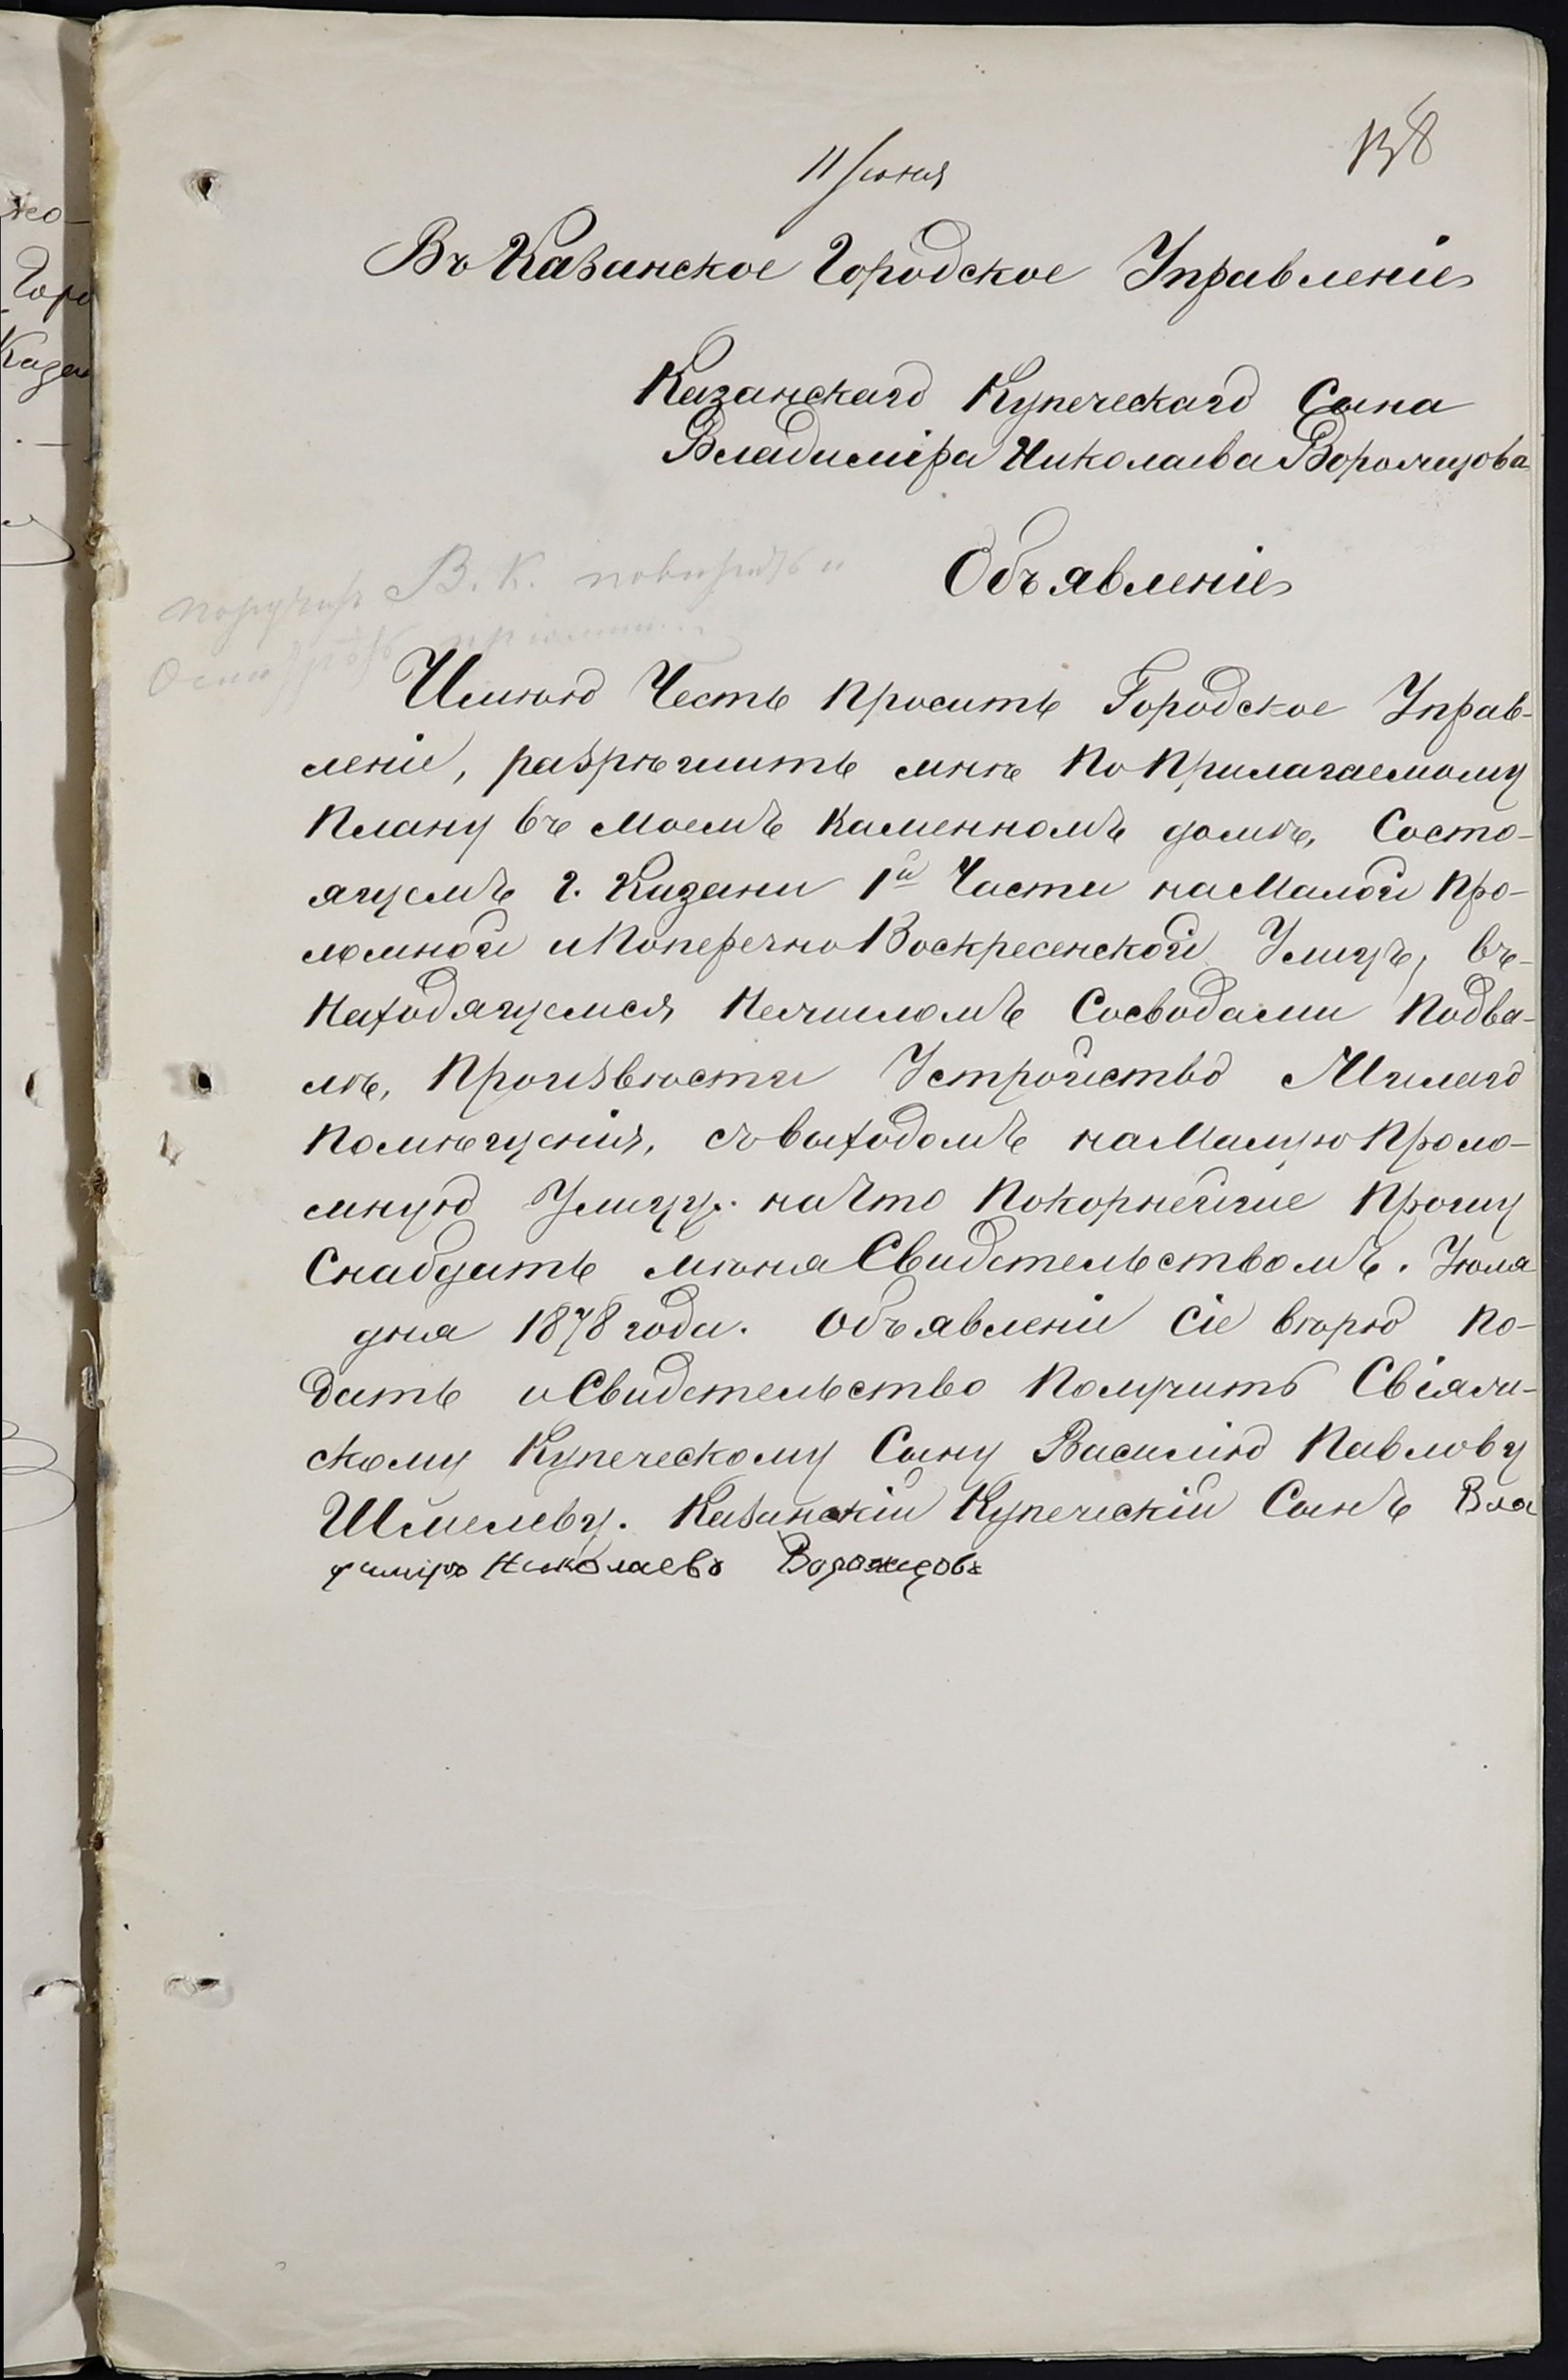 138
11 Іюня
Въ Казанское Городское Управленіе
Казанскаго Купеческаго Сына
Владиміра Николаева Воролжцова
Объявленіе
В. К.
Имѣю Честь просить Городское Управ-
леніе, разрѣшить мнѣ по прилагаемому
плану въ моемъ каменномъ домѣ, Состо-
ящемъ г. Казани 1й Части на Малой про-
ломной и поперечно Воскресенской Улицѣ, въ-
находящемся нежиломъ Сосводами подва-
лѣ, произвѣсти Устройство Жилаго
помѣщенія, съ выходомъ на Малую проло-
мную Улицу. на что покорнейше прошу
Снабдить мѣня Свидетельствомъ. Іюля
дня 1878 года. Объявленіе Сіе вѣрю по-
дать и Свидетельство получить Свіяжи-
скому Купеческому Сыну Василію Павлову
Шмелеву. Казанскій Купеческій Сынъ Вла
диміръ Николаевъ